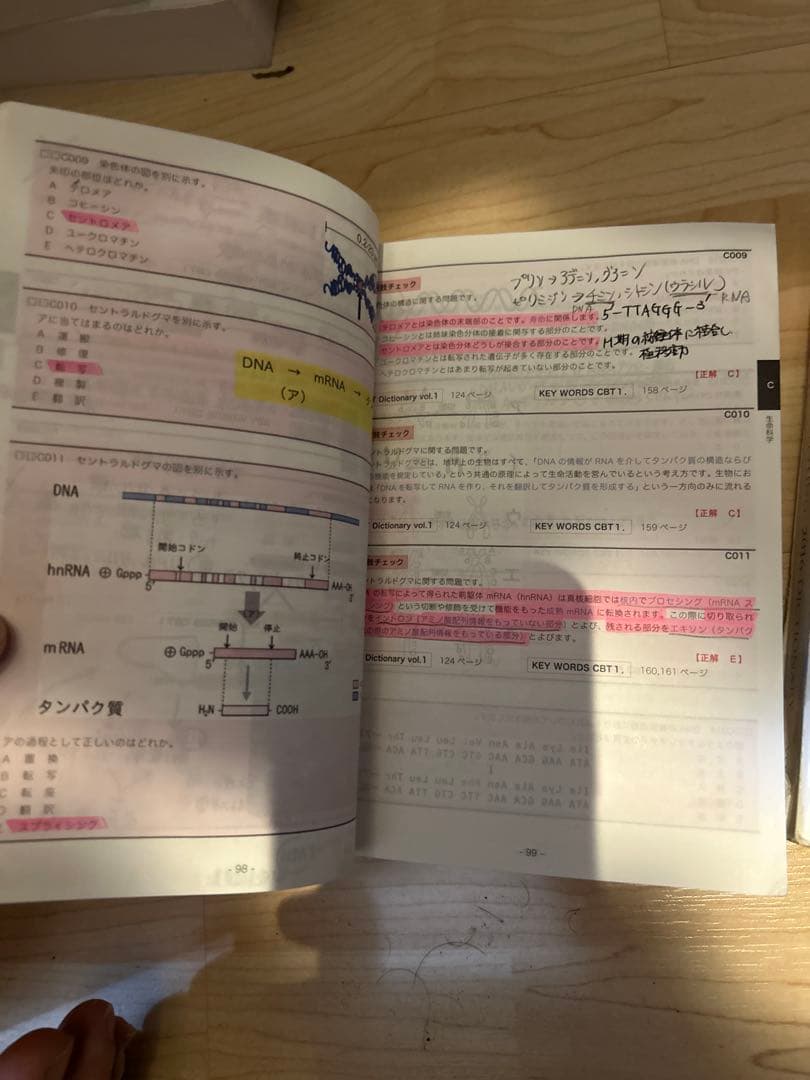 C009 染色体の図を別に示す。
矢印の部位はどれか。
A テロメア
B コヒーシン
C セントロメア
D ユークロマチン
E ヘテロクロマチン
C010 セントラルドグマを別に示す。
アに当てはまるのはどれか。
A 運搬
B 修復
C 転写
D 複製
E 翻訳
DNA → mRNA →
(ア)
C011 セントラルドグマの図を別に示す。
DNA
開始コドン
終止コドン
hnRNA ⊕ Gppp
AAA-OH
5'
3'
開始
停止
mRNA
⊕ Gppp
AAA-OH
5'
3'
タンパク質
H₂N
COOH
アの過程として正しいのはどれか。
A 置換
B 転写
C 転座
D 翻訳
スプライシング
- 98 -
C009
チェック
プリン→アデニン,グアニン
ピリミジン→チミン,シトシン(ウラシル)
DNA
RNA
体の構造に関する問題です。
5'-TTAGGG-3'
テロメアとは染色体の末端部のことです。寿命に関係します。
コヒーシンとは姉妹染色分体の接着に関与する部分のことです。
セントロメアとは染色分体どうしが接合する部分のことです。
M期の
に接合し
ユークロマチンとは転写された遺伝子が多く存在する部分のことです。
ヘテロクロマチンとはあまり転写が起きていない部分のことです。
【正解 C】
Dictionary vol.1 124ページ KEY WORDS CBT1. 158ページ
C
生命科学
C010
チェック
ントラルドグマに関する問題です。
ントラルドグマとは、地球上の生物はすべて、「DNAの情報がRNAを介してタンパク質の構造ならび
機能を規定している」という共通の原理によって生命活動を営んでいるという考え方です。生物にお
「DNAを転写してRNAを作り、それを翻訳してタンパク質を形成する」という一方向のみに流れる
になります。
【正解 C】
Dictionary vol.1 124ページ KEY WORDS CBT1. 159ページ
C011
チェック
ントラルドグマに関する問題です。
の転写によって得られた前駆体mRNA(hnRNA)は真核細胞では核内でプロセシング(mRNAス
シング)という切断や修飾を受けて機能をもった成熟mRNAに転換されます。この際に切り取られ
をイントロン(アミノ酸配列情報をもっていない部分)とよび、残される部分をエキソン(タンパク
のアミノ酸配列情報をもっている部分)とよびます。
【正解 E】
Dictionary vol.1 124ページ KEY WORDS CBT1. 160,161ページ
- 99 -